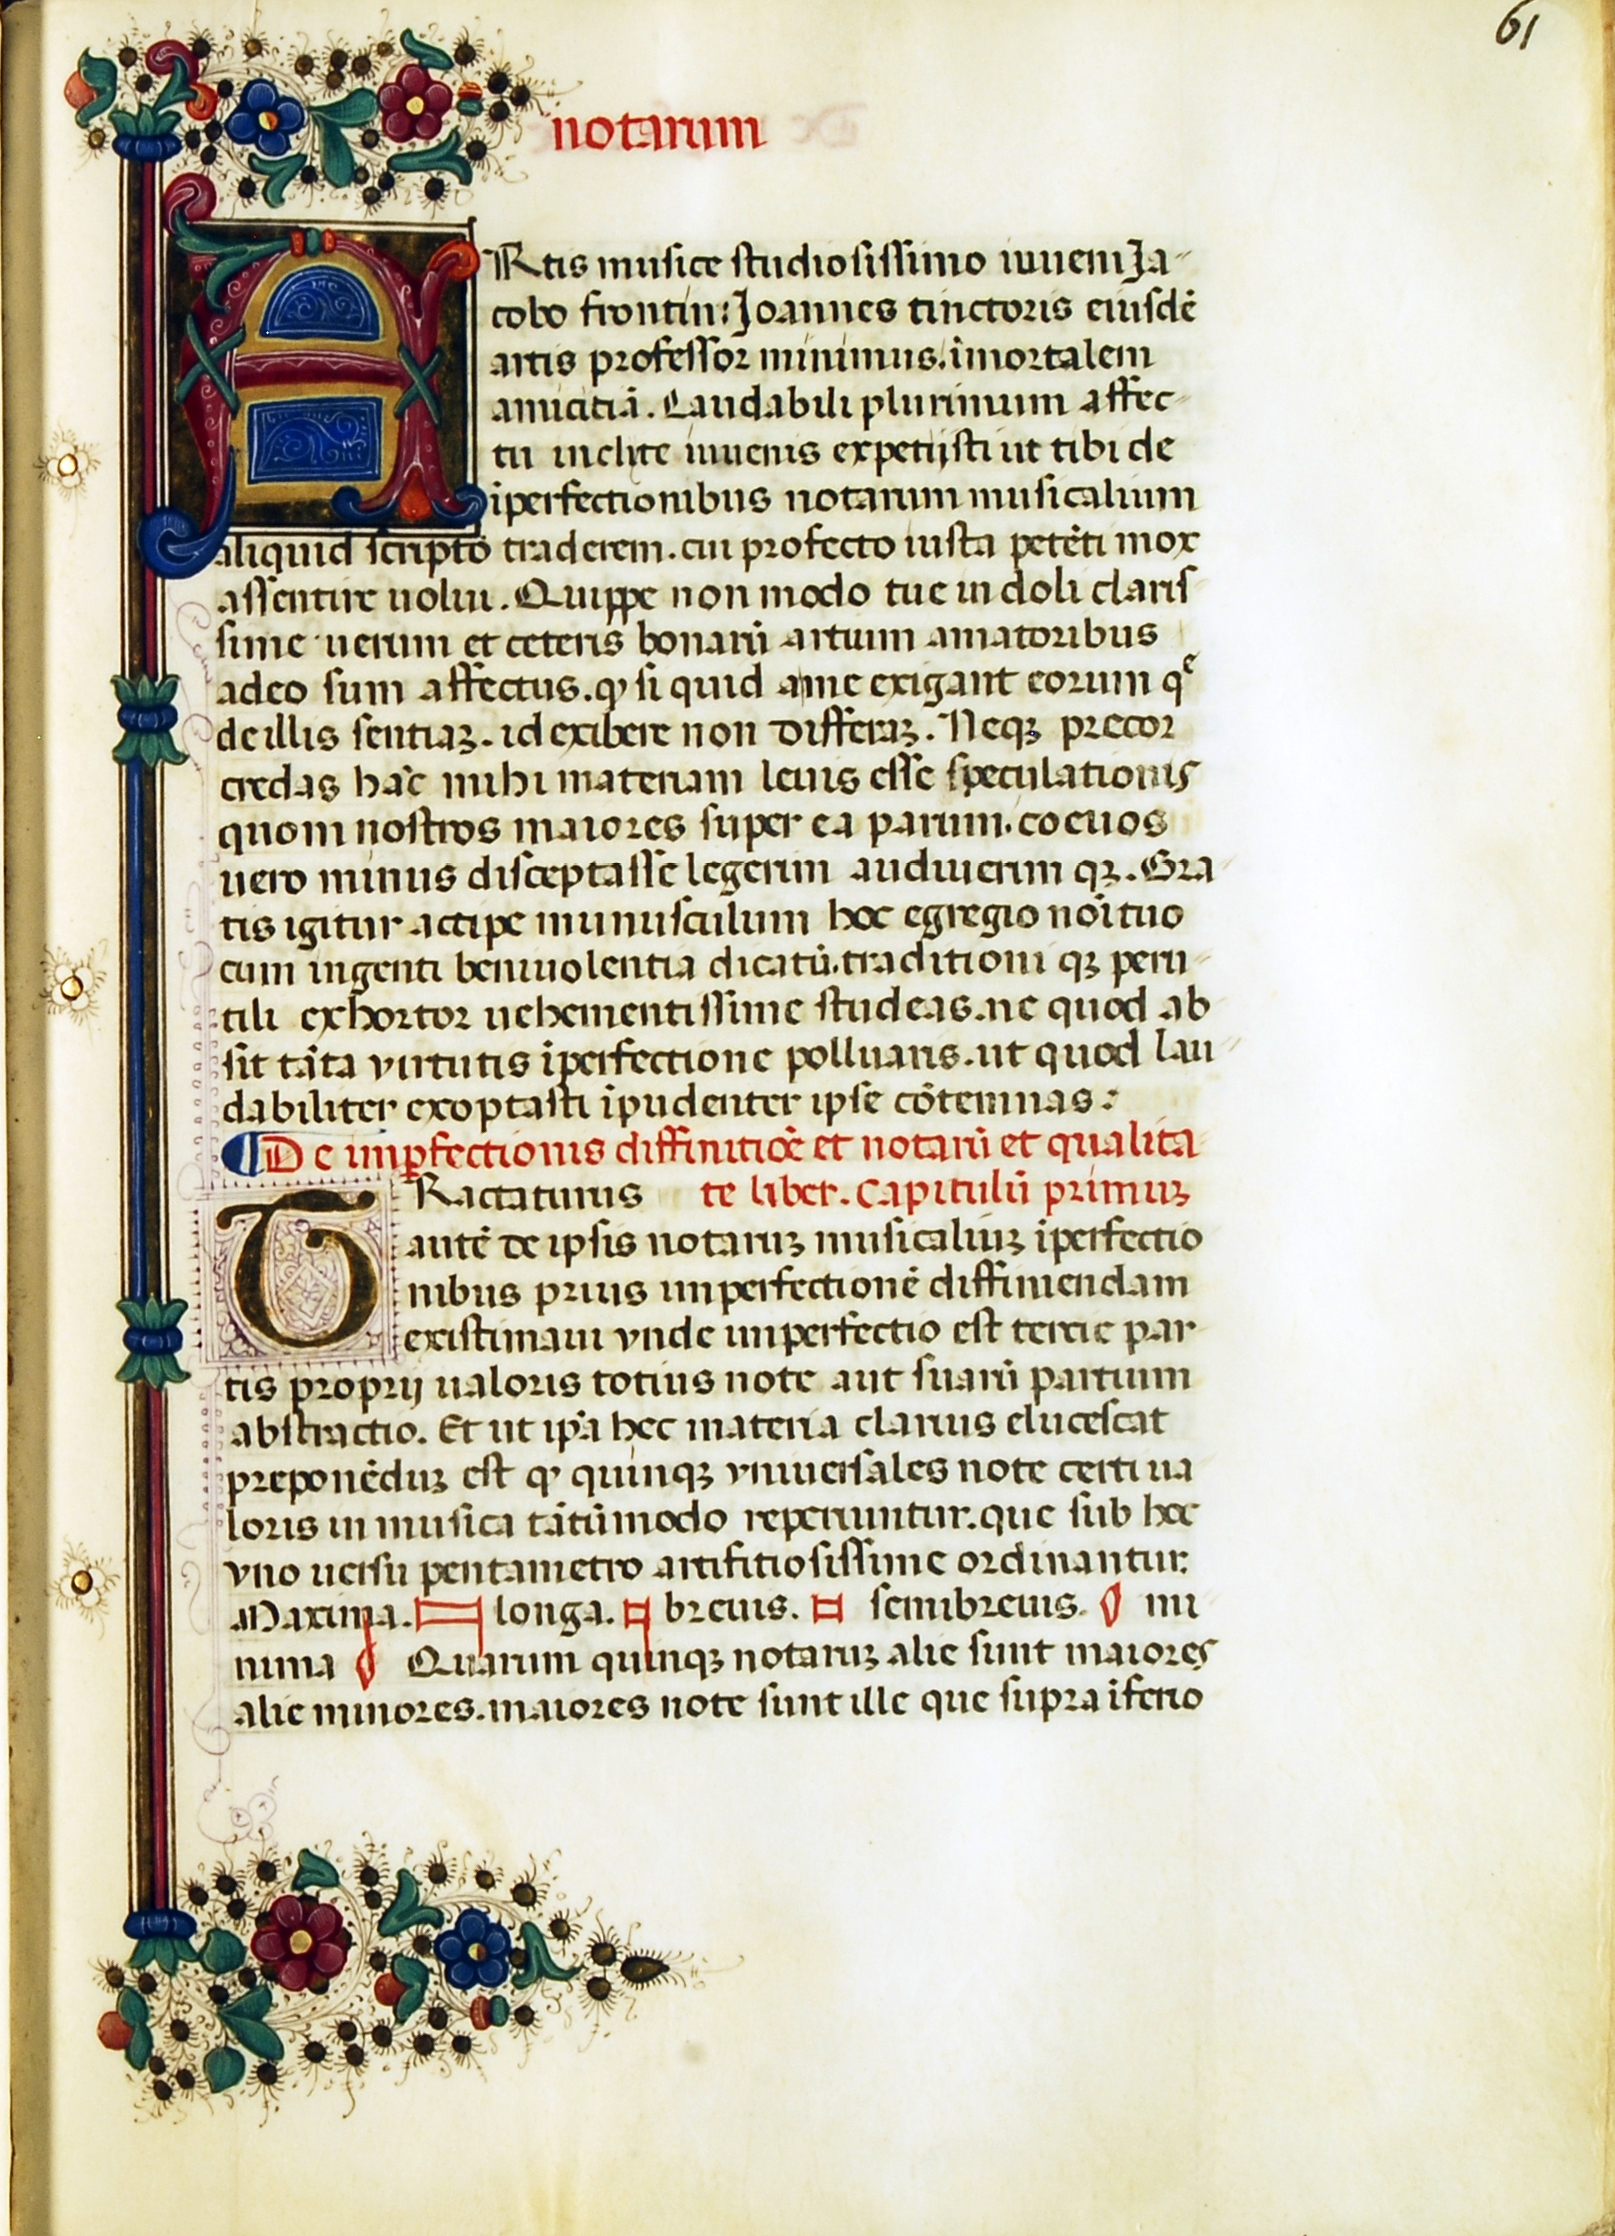 61
notarum
ARtis musice studiosissimo iuueni Ja-
cobo frontin: Joannes tinctoris eiusdē
artis professor minimus. īmortalem
amicitiā. Laudabili plurimum affec-
tu inclite iuuenis expetijsti ut tibi de
īperfectionibus notarum musicalium
aliquid scripto traderem. cui profecto iusta petēti mox
assentire uolui. Quippe non modo tue indoli claris
sime uerum et ceteris bonarū artium amatoribus
adeo sum affectus. ꝙ si quid a me exigant eorum qͤ
de illis sentiaꝫ. id exibere non differaꝫ. Neqꝫ precor
credas hāc mihi materiam leuis esse speculationis
quom nostros maiores super ea parum. coeuos
uero minus disceptasse legerim audiuerim qꝫ. Gra-
tis igitur accipe munusculum hoc egregio noī tuo
cum ingenti beniuolentia dicatū. traditioni qꝫ peru-
tili exhortor uehementissime studeas. ne quod ab
sit tāta virtutis īperfectione polluaris. ut quod lau-
dabiliter exoptasti īpudenter ipse cōtemnas:
¶De imꝑfectionis diffinitiōe et notarū et qualita
te liber. Capitulū primuꝫ
TRactaturus
autē de ipsis notaruꝫ musicaliuꝫ īperfectio
nibus prius imperfectionē diffiniendam
existimaui vnde imperfectio est tercie par-
tis proprij ualoris totius note aut suarū partium
abstractio. Et ut ip̄a hec materia clarius elucescat
preponēduꝫ est ꝙ quinqꝫ vniuersales note certi ua
loris in musica tātūmodo reperiuntur. que sub hoc
vno uersu pentametro artifitiosissime ordinantur.
Maxima. longa. breuis. semibreuis. mi
nima Quarum quinqꝫ notaruꝫ alie sunt maiores
alie minores. maiores note sunt ille que supra īferio